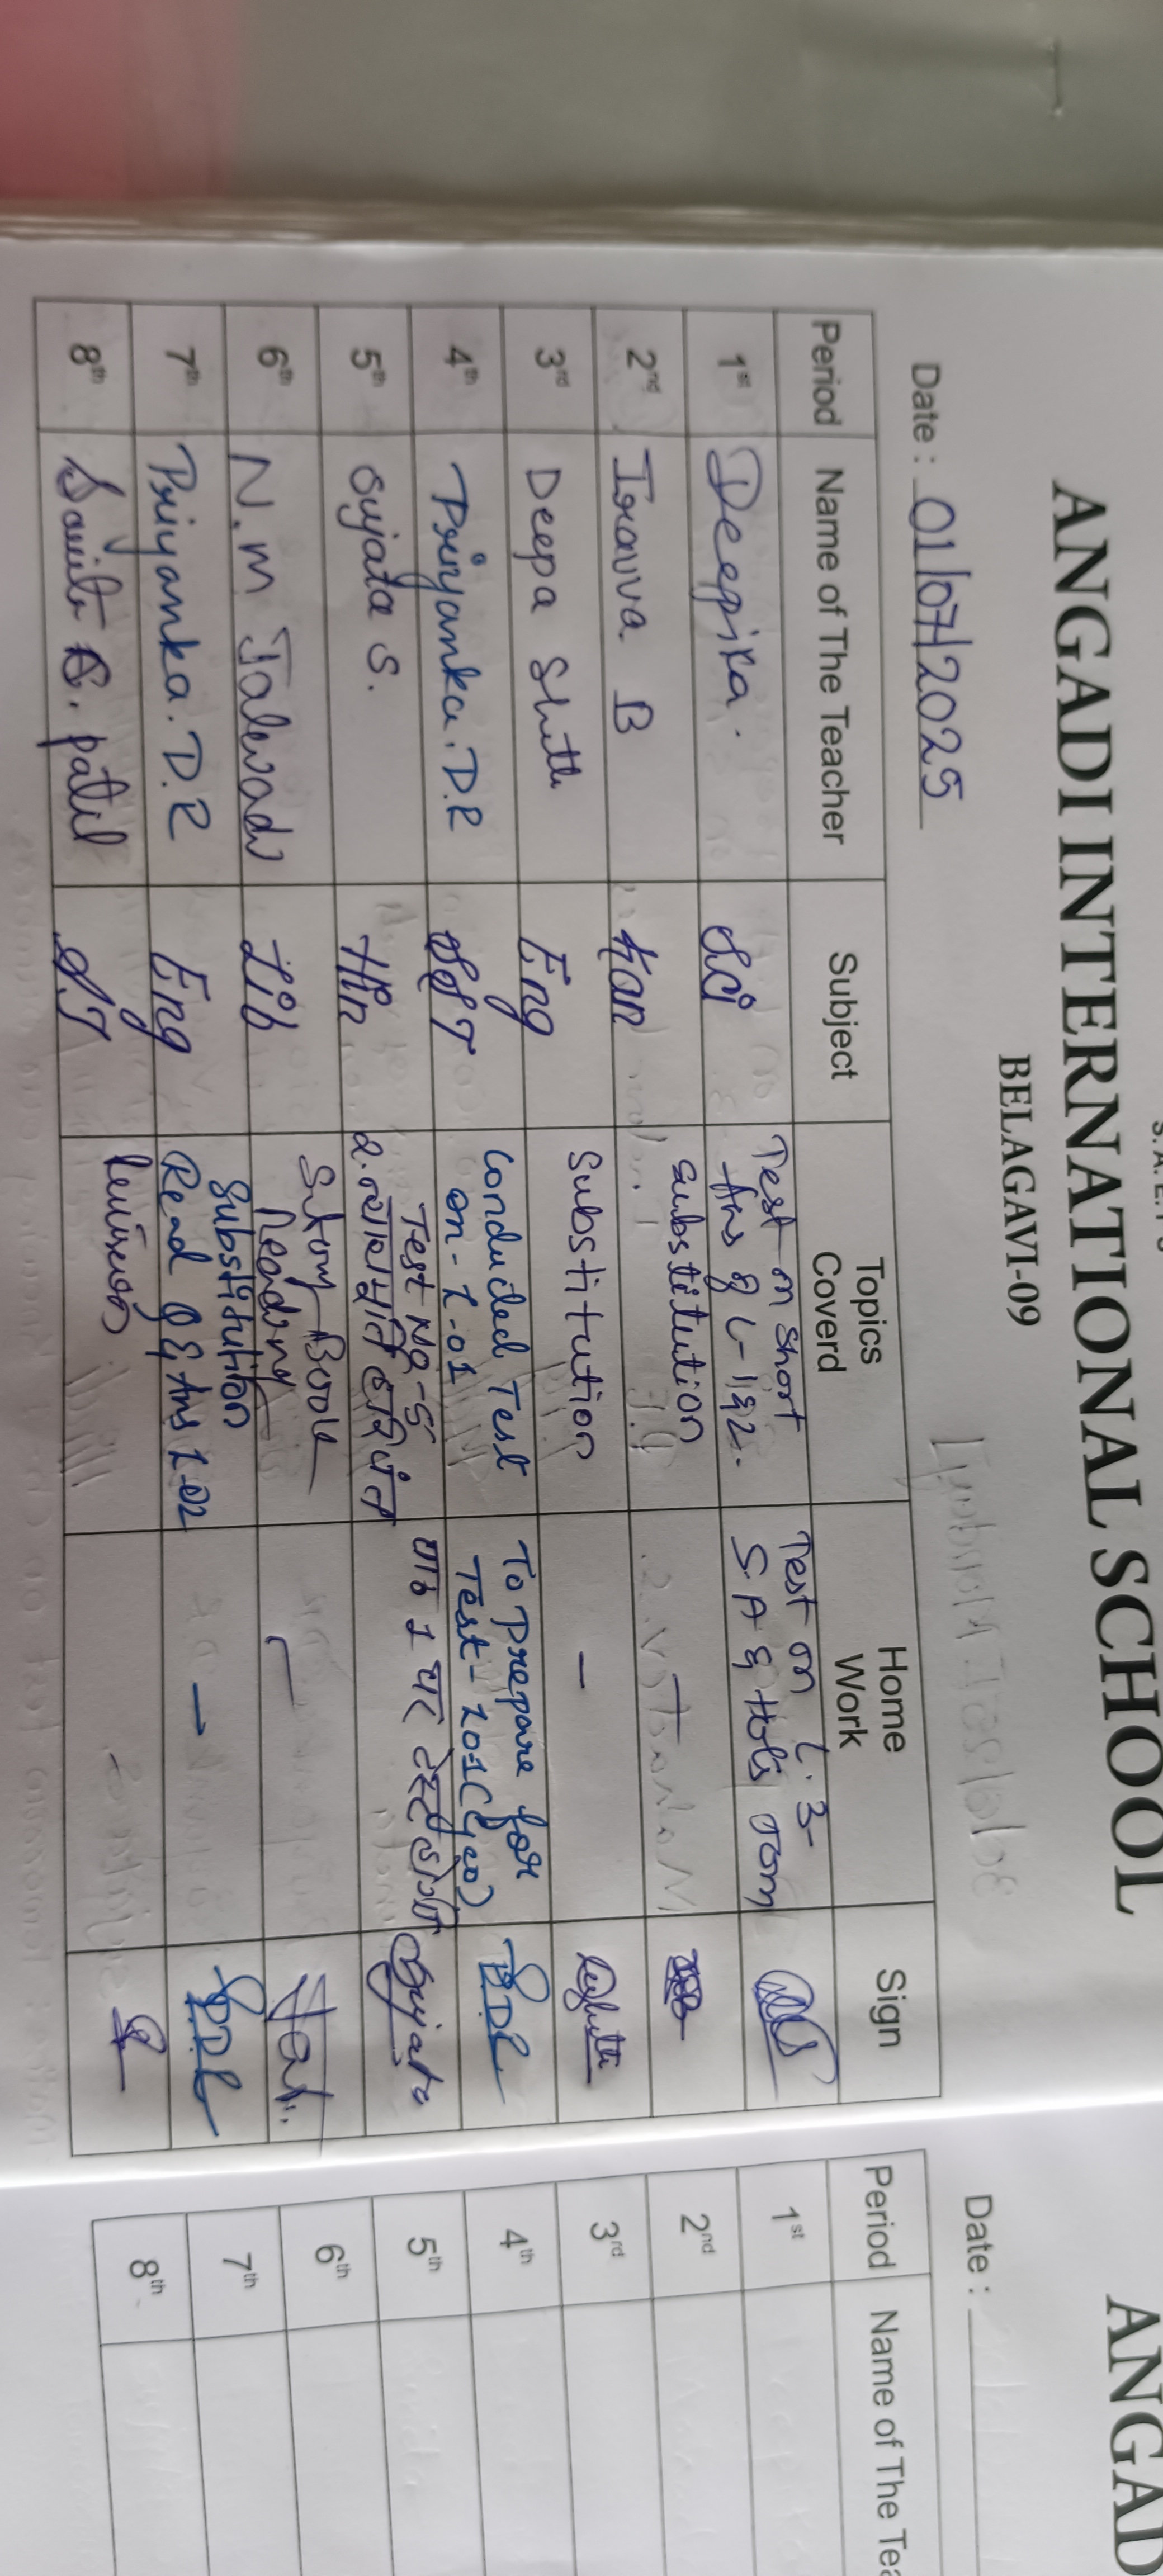 ANGADI INTERNATIONAL SCHOOL
BELAGAVI-09
Date : 01/07/2025
Period Name of The Teacher Subject Topics Coverd Home Work Sign
1st Deepika. Sci Test on short Test on L.3-
Ans of L-1&2. S.A & Hots
2nd Iravva B Kan Substitution
3rd Deepa Shetti Eng Substitution —
4th Priyanka.D.R SST Conducted Test To Prepare for
on-L-01 Test-L01
5th Sujata S. Hin Test No-5 पाठ 1 पर टेस्ट होगी Sujata
6th N.M Jalewadi Lib Story Book
Reading
7th Priyanka.D.R Eng Substitution —
Read Q & Ans L-02
8th patil
Date :
Period Name of The
1st
2nd
3rd
4th
5th
6th
7th
8th